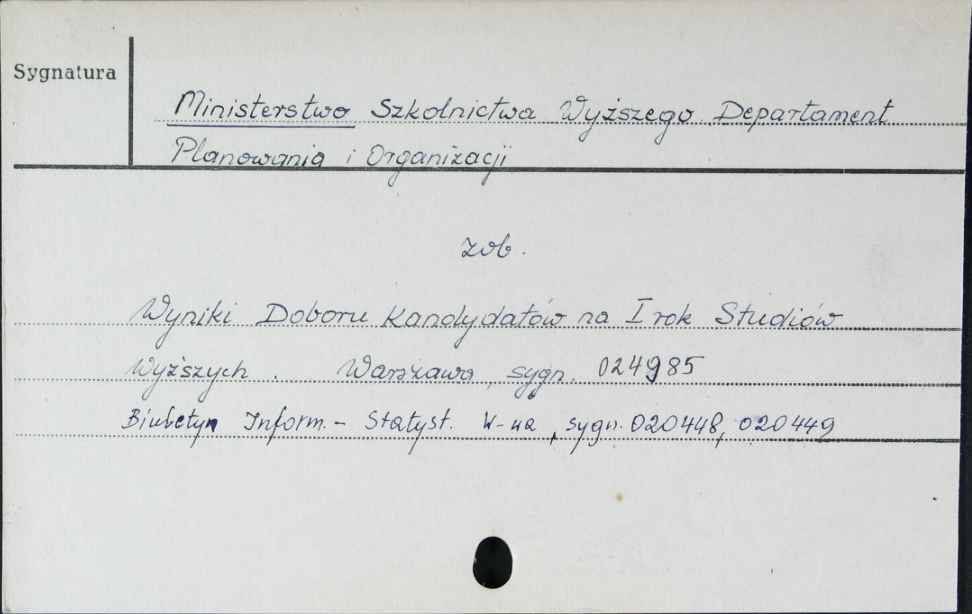 Sygnatura
Ministerstwo Szkolnictwa Wyższego Departament
Planowania i Organizacji
zob.
Wyniki Doboru Kandydatów na I rok Studiów
Wyższych . Warszawa, sygn. 024985
Biuletyn Inform. - Statyst. W-wa, sygn. 020448, 020449